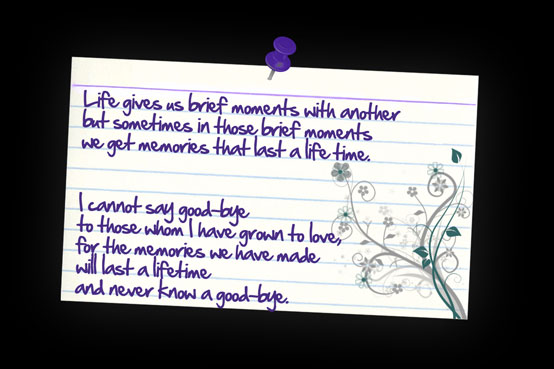 Life gives us brief moments with another
but sometimes in those brief moments
we get memories that last a life time.
I cannot say good-bye
to those whom I have grown to love,
for the memories we have made
will last a lifetime
and never know a good-bye.